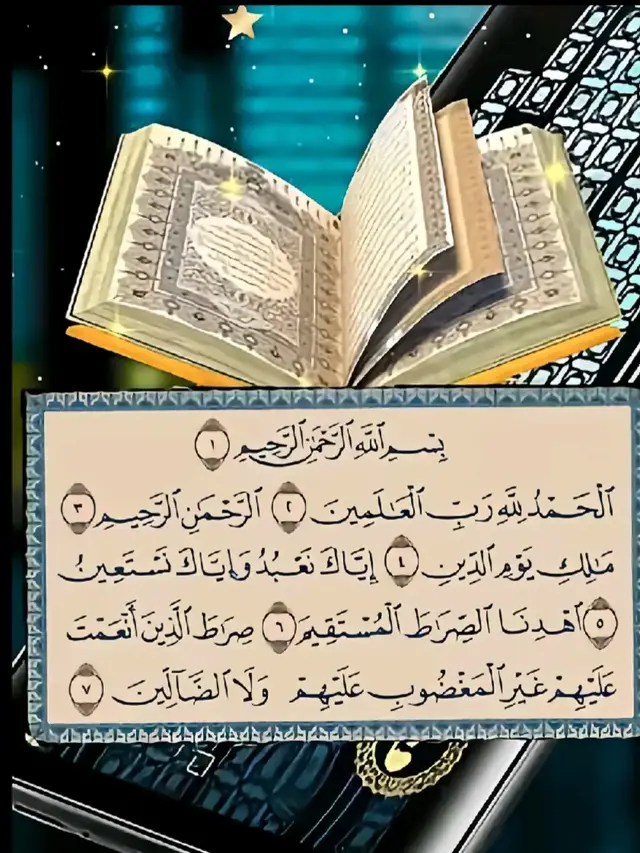 بِسْمِ ٱللَّهِ ٱلرَّحْمَٰنِ ٱلرَّحِيمِ ١
ٱلْحَمْدُ لِلَّهِ رَبِّ ٱلْعَٰلَمِينَ ٢ ٱلرَّحْمَٰنِ ٱلرَّحِيمِ ٣
مَٰلِكِ يَوْمِ ٱلدِّينِ ٤ إِيَّاكَ نَعْبُدُ وَإِيَّاكَ نَسْتَعِينُ
٥ ٱهْدِنَا ٱلصِّرَٰطَ ٱلْمُسْتَقِيمَ ٦ صِرَٰطَ ٱلَّذِينَ أَنْعَمْتَ
عَلَيْهِمْ غَيْرِ ٱلْمَغْضُوبِ عَلَيْهِمْ وَلَا ٱلضَّآلِّينَ ٧